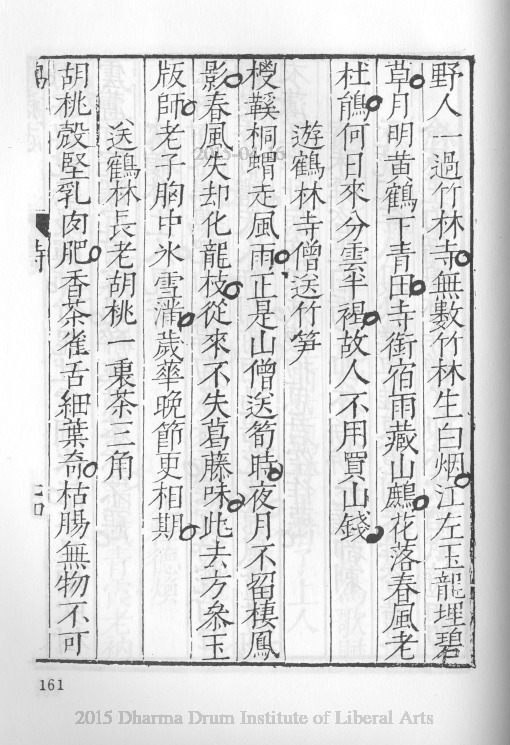 野人一過竹林寺無數竹林生白烟江左玉龍埋碧
草月明黄鶴下青田寺銜宿雨藏山鷓花落春風老
杜鵑何日來分雲半裀故人不用買山錢
遊鶴林寺僧送竹笋
椶鞵桐帽走風雨正是山僧送筍時夜月不留棲鳳
影春風失却化龍枝從來不失葛藤味此去方叅玉
版師老子胸中氷雪滿歲華晚節更相期
送鶴林長老胡桃一裹茶三角
胡桃殼堅乳肉肥香茶雀舌細葉奇枯腸無物不可
161
2015 Dharma Drum Institute of Liberal Arts